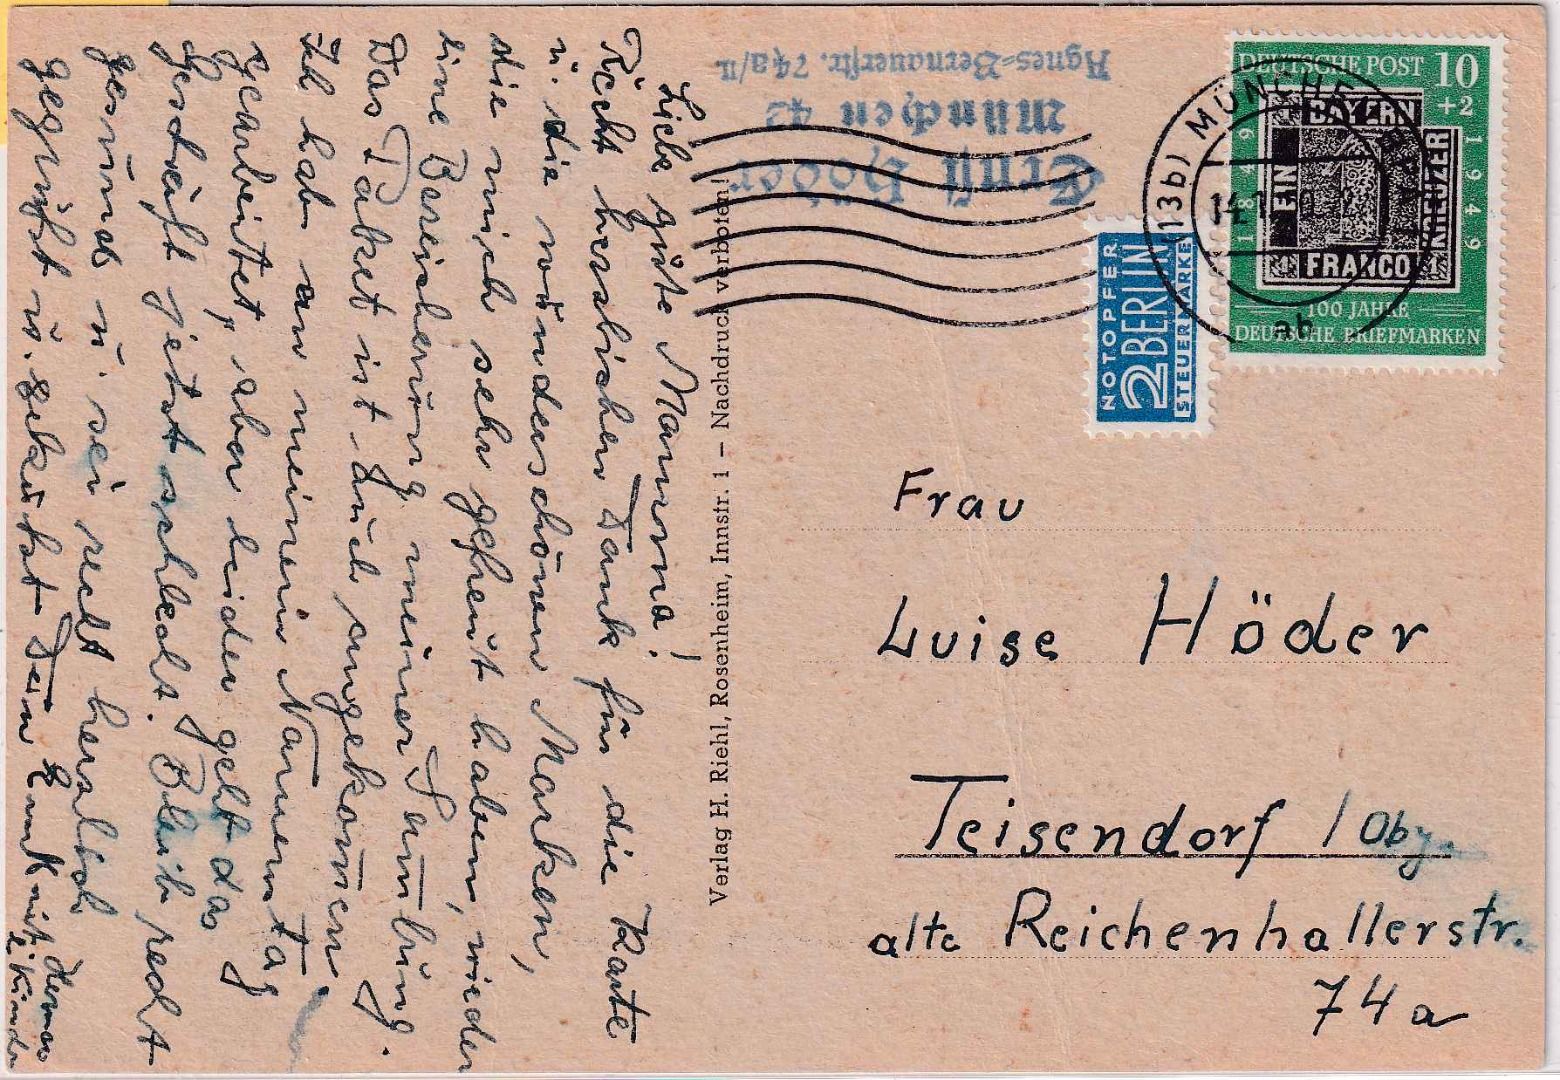 Liebe gute Mamma!
Recht herzlichen Dank für die Karte
u. die wunderschönen Marken,
die mich sehr gefreut haben, wieder
eine Bereicherung meiner Sammlung.
Das Paket ist auch angekommen.
Ich hab an meinem Namenstag
gearbeitet, aber leider geht das
Geschäft jetzt schlecht. Bleib recht
gesund u. sei recht herzlich
gegrüßt u. geküsst Dein Ernst mit
u. Kinder
Verlag H. Riehl, Rosenheim, Innstr. 1 – Nachdruck verboten!
Ernst Höder
München 42
Agnes-Bernauerstr. 74a/II
(13b) MÜNCHEN
ab
DEUTSCHE POST 10
+2
1849
1949
BAYERN
EIN
KREUZER
FRANCO
100 JAHRE
DEUTSCHE BRIEFMARKEN
NOTOPFER
2 BERLIN
STEUERMARKE
Frau
Luise Höder
Teisendorf / Oby.
alte Reichenhallerstr.
74a